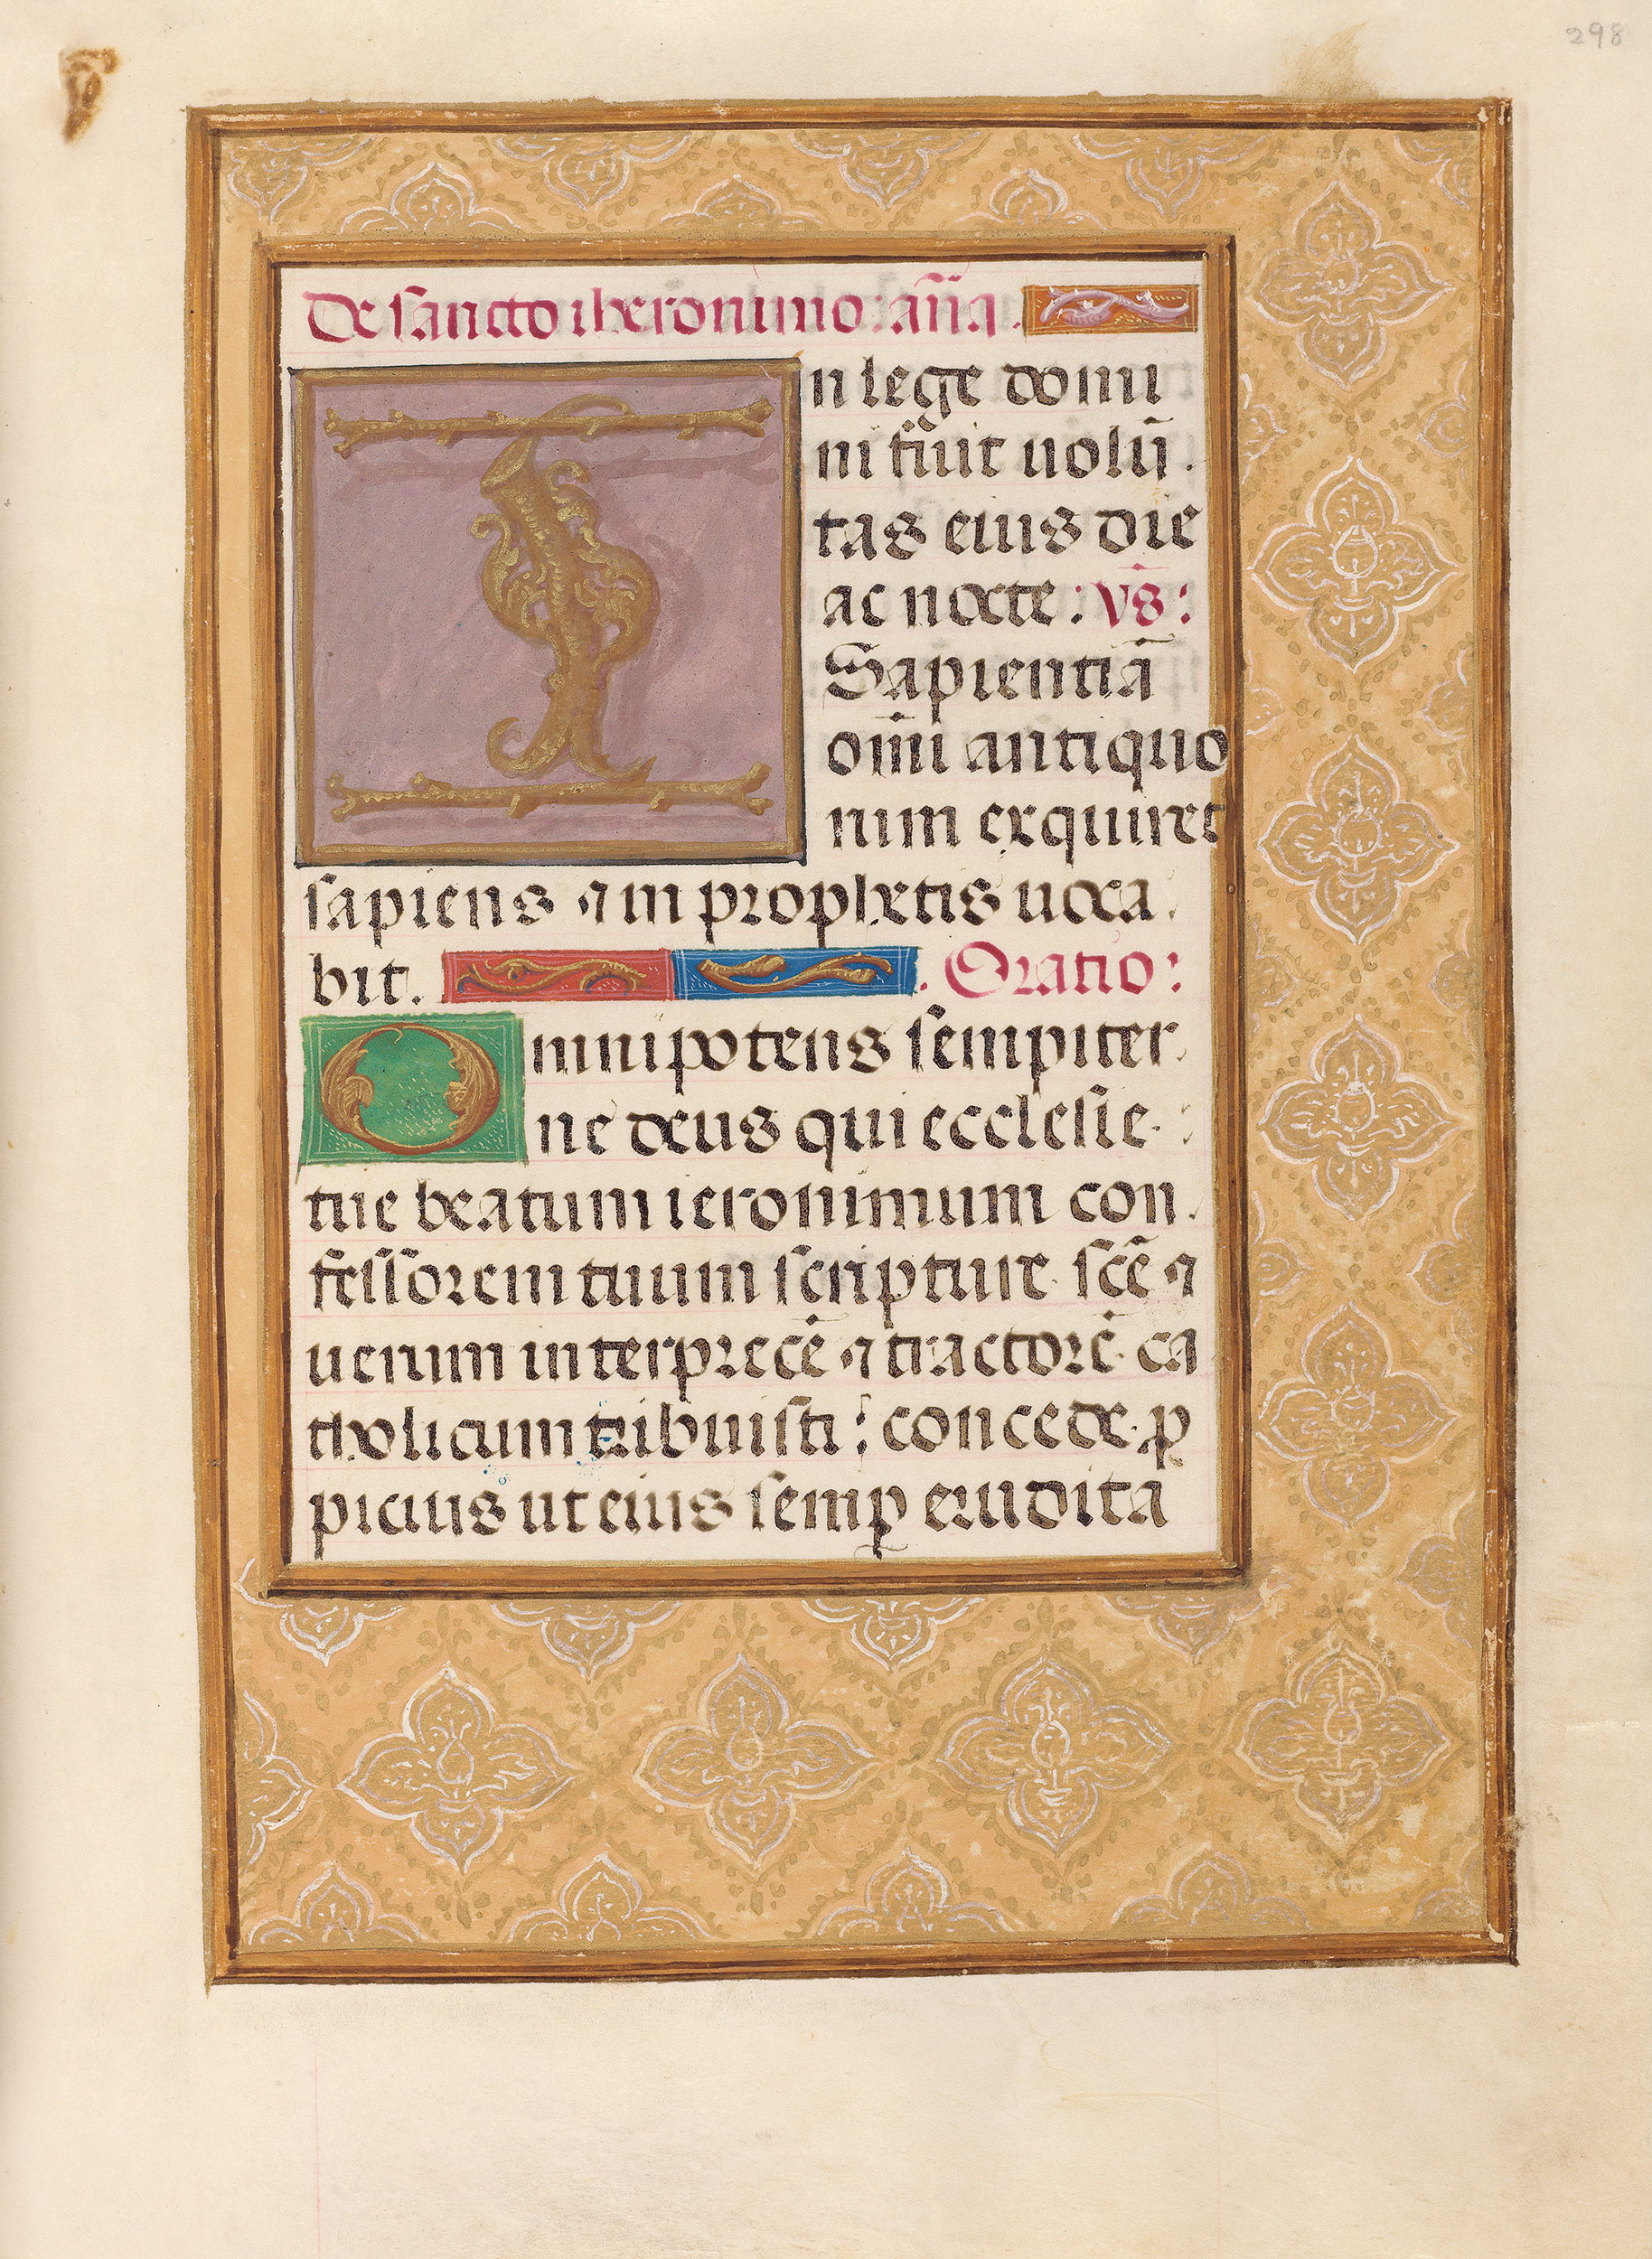 298
De sancto iheronimo: an̄a.
In lege domi
ni fuit uolū
tas eius die
ac nocte: vs̄:
Sapientiā
om̄i antiquo
rum exquiret
sapiens ⁊ in prophetis uoca
bit. Oratio:
Omnipotens sempiter
ne deus qui ecclesie
tue beatum ieronimum con
fessorem tuum scripture scē ⁊
uerum interprecē ⁊ tractorē ca
tholicum tribuisti: concede ꝓ
picius ut eius semꝑ erudita